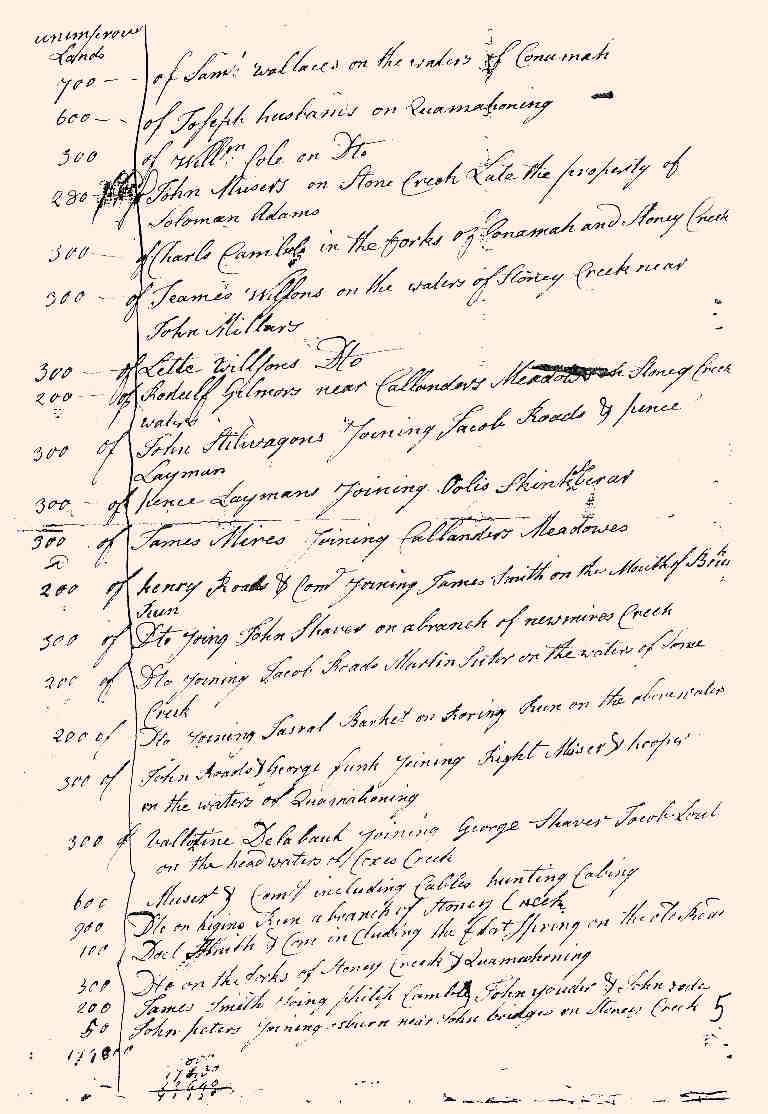 unimprov
Lands
700 - - of Saml. wallaces on the waters of Conumah
600 - - of Joseph husbands on Quamahoning
300 of Willm. Cole on Dto
280 John Musers on Stone Creek Late the property of
Soloman Adams
300 - of Charls Cambels in the forks of Conamah and Stoney Creek
300 - of Jeames Willsons on the waters of Stoney Creek near
John Millars
300 - of Lette Willsons Dto
200 - of Rodulf Gilmors near Callanders Meadows Stoney Creek
waters
300 of John Stilwagons Joining Jacob Roads & pence
Layman
300 - of pence Laymans Joining
300 of James Mires Joining Callanders Meadowes
200 of henry Roads & Comy Joining James Smith on the Mouth of
Run
300 of Dto Joing John Shaver on a branch of newmires Creek
200 of Dto Joining Jacob Roads Martin on the waters of Some
Creek
200 of Dto Joining Barket on Roring Run on the above water
300 of John Roads & George funk Joining Right Miser & hooper
on the waters of Quamahoning
300 of Vallotine Delabauk Joining George Shaver Jacob
on the head waters of Coxes Creek
600 Muser & Comy including Cables hunting Cabing
900 Dto on higins Run a branch of Stoney Creek
100 Smith & Com in Cluding the Spring on the old Road
300 Dto on the forks of Stoney Creek & Quamahoning
200 James Smith Joing philip Camble John youder & John
50 John peters Joining osburn near John bridges on Stoney Creek 5